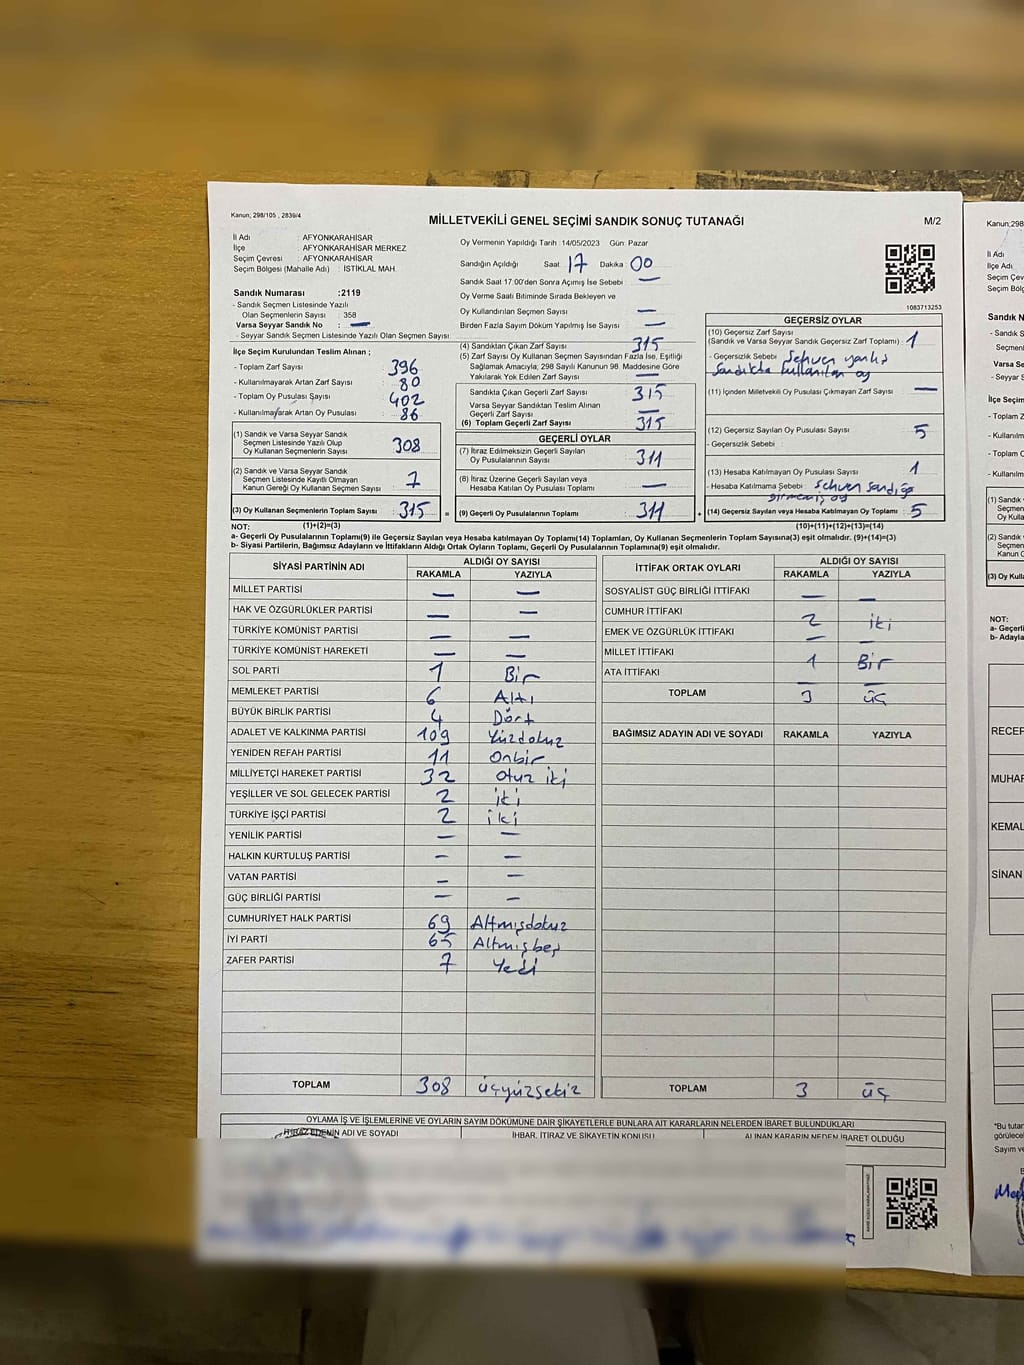 Kanun; 298/105 , 2839/4
MİLLETVEKİLİ GENEL SEÇİMİ SANDIK SONUÇ TUTANAĞI
M/2
İl Adı : AFYONKARAHİSAR
İlçe : AFYONKARAHİSAR MERKEZ
Seçim Çevresi : AFYONKARAHİSAR
Seçim Bölgesi (Mahalle Adı) : İSTİKLAL MAH.
Sandık Numarası :2119
- Sandık Seçmen Listesinde Yazılı
Olan Seçmenlerin Sayısı : 358
Varsa Seyyar Sandık No : —
- Seyyar Sandık Seçmen Listesinde Yazılı Olan Seçmen Sayısı
İlçe Seçim Kurulundan Teslim Alınan ;
- Toplam Zarf Sayısı 396
- Kullanılmayarak Artan Zarf Sayısı 80
- Toplam Oy Pusulası Sayısı 402
- Kullanılmayarak Artan Oy Pusulası 86
(1) Sandık ve Varsa Seyyar Sandık
Seçmen Listesinde Yazılı Olup
Oy Kullanan Seçmenlerin Sayısı 308
(2) Sandık ve Varsa Seyyar Sandık
Seçmen Listesinde Kayıtlı Olmayan
Kanun Gereği Oy Kullanan Seçmen Sayısı 7
(3) Oy Kullanan Seçmenlerin Toplam Sayısı 315 =
(1)+(2)=(3)
Oy Vermenin Yapıldığı Tarih :14/05/2023 Gün: Pazar
Sandığın Açıldığı Saat: 17 Dakika: 00
Sandık Saat 17:00'den Sonra Açılmış İse Sebebi —
Oy Verme Saati Bitiminde Sırada Bekleyen ve
Oy Kullandırılan Seçmen Sayısı —
Birden Fazla Sayım Döküm Yapılmış İse Sayısı —
(4) Sandıktan Çıkan Zarf Sayısı 315
(5) Zarf Sayısı Oy Kullanan Seçmen Sayısından Fazla İse, Eşitliği
Sağlamak Amacıyla, 298 Sayılı Kanunun 98. Maddesine Göre
Yakılarak Yok Edilen Zarf Sayısı —
Sandıkta Çıkan Geçerli Zarf Sayısı 315
Varsa Seyyar Sandıktan Teslim Alınan
Geçerli Zarf Sayısı —
(6) Toplam Geçerli Zarf Sayısı 315
GEÇERLİ OYLAR
(7) İtiraz Edilmeksizin Geçerli Sayılan
Oy Pusulalarının Sayısı 311
(8) İtiraz Üzerine Geçerli Sayılan veya
Hesaba Katılan Oy Pusulası Toplamı —
(9) Geçerli Oy Pusulalarının Toplamı 311 +
1083713253
GEÇERSİZ OYLAR
(10) Geçersiz Zarf Sayısı
(Sandık ve Varsa Seyyar Sandık Geçersiz Zarf Toplamı) : 1
- Geçersizlik Sebebi : Sehven yanlış
Sandıkta kullanılan oy
(11) İçinden Milletvekili Oy Pusulası Çıkmayan Zarf Sayısı —
(12) Geçersiz Sayılan Oy Pusulası Sayısı 5
- Geçersizlik Sebebi :
(13) Hesaba Katılmayan Oy Pusulası Sayısı 1
- Hesaba Katılmama Şebebi : Sehven Sandığa
girmemiş oy
(14) Geçersiz Sayılan veya Hesaba Katılmayan Oy Toplamı 5
(10)+(11)+(12)+(13)=(14)
NOT:
a- Geçerli Oy Pusulaları Toplamı(9) ile Geçersiz Sayılan veya Hesaba Katılmayan Oy Toplamı(14) Toplamları, Oy Kullanan Seçmenlerin Toplam Sayısına(3) eşit olmalıdır. (9)+(14)=(3)
b- Siyasi Partilerin, Bağımsız Adayların ve İttifakların Aldığı Ortak Oyların Toplamı, Geçerli Oy Pusulalarının Toplamına(9) eşit olmalıdır.
SİYASİ PARTİNİN ADI ALDIĞI OY SAYISI
RAKAMLA YAZIYLA
MİLLET PARTİSİ — —
HAK VE ÖZGÜRLÜKLER PARTİSİ — —
TÜRKİYE KOMÜNİST PARTİSİ — —
TÜRKİYE KOMÜNİST HAREKETİ — —
SOL PARTİ 1 Bir
MEMLEKET PARTİSİ 6 Altı
BÜYÜK BİRLİK PARTİSİ 4 Dört
ADALET VE KALKINMA PARTİSİ 109 Yüzdokuz
YENİDEN REFAH PARTİSİ 11 Onbir
MİLLİYETÇİ HAREKET PARTİSİ 32 Otuz iki
YEŞİLLER VE SOL GELECEK PARTİSİ 2 iki
TÜRKİYE İŞÇİ PARTİSİ 2 iki
YENİLİK PARTİSİ — —
HALKIN KURTULUŞ PARTİSİ — —
VATAN PARTİSİ — —
GÜÇ BİRLİĞİ PARTİSİ — —
CUMHURİYET HALK PARTİSİ 69 Altmışdokuz
İYİ PARTİ 65 Altmışbeş
ZAFER PARTİSİ 7 Yedi
TOPLAM 308 üçyüzsekiz
İTTİFAK ORTAK OYLARI ALDIĞI OY SAYISI
RAKAMLA YAZIYLA
SOSYALİST GÜÇ BİRLİĞİ İTTİFAKI — —
CUMHUR İTTİFAKI 2 iki
EMEK VE ÖZGÜRLÜK İTTİFAKI — —
MİLLET İTTİFAKI 1 Bir
ATA İTTİFAKI — —
TOPLAM 3 üç
BAĞIMSIZ ADAYIN ADI VE SOYADI RAKAMLA YAZIYLA
TOPLAM 3 üç
OYLAMA İŞ VE İŞLEMLERİNE VE OYLARIN SAYIM DÖKÜMÜNE DAİR ŞİKAYETLERLE BUNLARA AİT KARARLARIN NELERDEN İBARET BULUNDUKLARI
İTİRAZ EDENİN ADI VE SOYADI İHBAR, İTİRAZ VE ŞİKAYETİN KONUSU ALINAN KARARIN NEDEN İBARET OLDUĞU
Kanun;298
İl Adı
İlçe Adı
Seçim Çev
Seçim Böl
Sandık N
- Sandık S
Seçmenl
İlçe Seç
- Toplam Z
- Kullanılm
- Toplam O
- Kullanılm
(1) Sandık
Seçmen
Oy Kulla
(2) Sandık
Seçmen
Kanun G
(3) Oy Kull
NOT:
a- Geçerli
b- Adayla
RECEP
MUHAR
KEMAL
SİNAN
*Bu tutar
görülece
Sayım ve